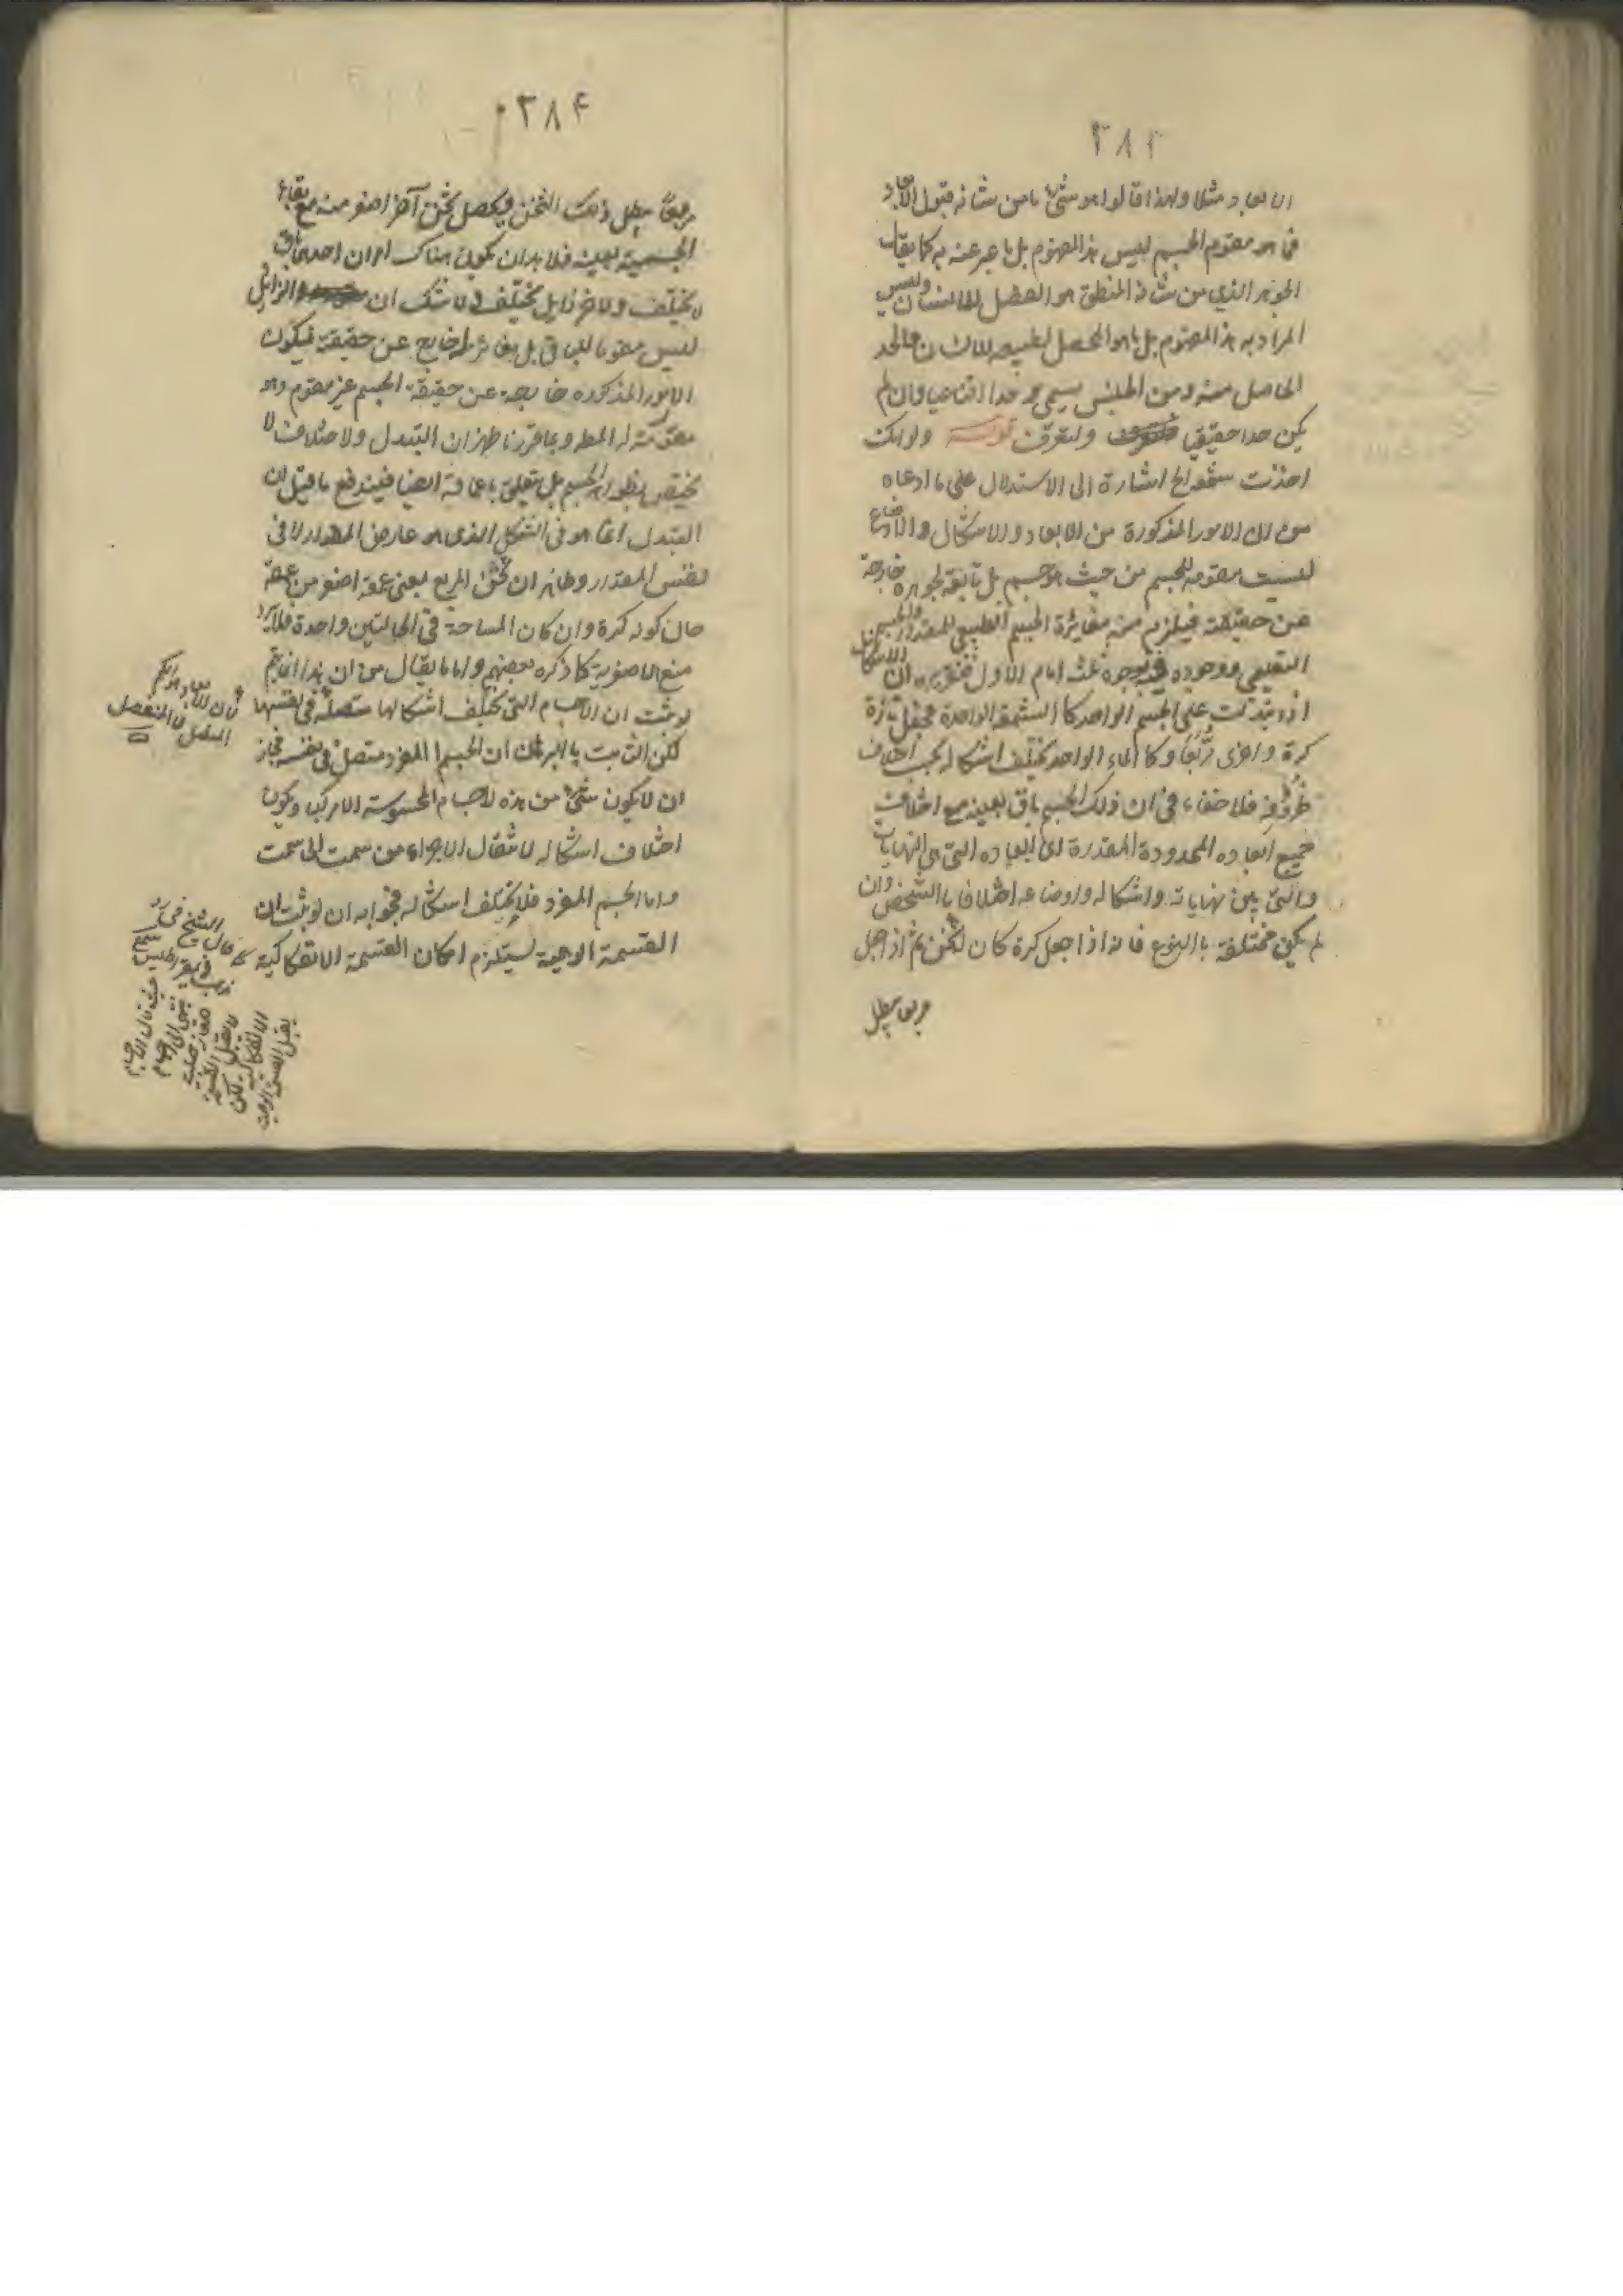 الابعاد مثلا ولهذا قالوا هو شئ ما من شانه قبول الابعاد
فما هو مقوم الجسم ليس هذا المفهوم بل ما عبر عنه به كما يقال
الجوهر الذي من شانه المنطق هو الفصل للانسان وليس
المراد به هذا المفهوم بل ما هو المحصل لطبيعة الانسان فالحد
الحاصل منه ومن الجنس يسمى حدا اقناعيا وان لم
يكن حدا حقيقيا ولتعرف قوله ولو انك
اخذت شمعة الخ اشارة الى الاستدلال على ما ادعاه
من ان الامور المذكورة من الابعاد والاشكال والاوضاع
ليست مقومه للجسم من حيث هو جسم بل تابعة لجوهره خارجة
عن حقيقته فيلزم منه مغايرة الجسم الطبيعي للمقدار والجسم
التعليمي ووجوده بوجوه ثلث اما الاول فتقريره ان الاشكال
اذا تبدلت على الجسم الواحد كالشمعة الواحدة تجعل تارة
كرة واخرى مربعا وكالماء الواحد يختلف اشكاله بحسب اختلاف
ظروفه فلا خفاء في ان ذلك الجسم باق بعينه مع اختلاف
جميع ابعاده المحدودة المقدرة اى ابعاده التي هي النهايات
والتي بين نهاياته واشكاله واوضاعه اختلافا بالشخص وان
لم يكن مختلفة بالنوع فانه اذا جعل كرة كان له ثخن ثم اذا جعل
مربعا يبطل
٣٨٤
مربعاً يبطل ذلك الثخن ويحصل ثخن آخر اصغر منه مع بقاء
الجسمية بعينه فلا بد ان يكون هناك امران احدهما باق
لا يختلف والاخر زايل يختلف ولا شك ان الزايل
ليس مقوما للباقي بل خارج عن حقيقته فيكون
الامور المذكوره خارجة عن حقيقة الجسم غير مقوم وهو
المط وبما قررنا ظهر ان التبدل والاختلاف لا
يختص بظواهر الجسم بل يتعلق باعماقه ايضا فيندفع ما قيل ان
التبدل انما هو في الشكل الذى هو عارض المقدار لا في
نفس المقدار وظاهر ان ثخن المربع يعنى عمقه اصغر من عمقه
حال كونه كرة وان كان المساحة في الحالتين واحدة فلا يرد
منع الاصغرية كما ذكره بعضهم واما ما يقال من ان هذا انما يتم
لو ثبت ان الاجسام التي يختلف اشكالها متصلة في نفسها
لكن الثابت بالبرهان ان الجسم المفرد متصل في نفسه فجاز
ان لا يكون شئ من هذه الاجسام المحسوسة الا مركبا ويكون
اختلاف اشكاله لانتقال الاجزاء من سمت الى سمت
واما الجسم المفرد فلا يختلف اشكاله فجوابه ان لو ثبت ان
القسمة الوهمية يستلزم امكان القسمة الانفكاكية
لان الابعاد هو الكم
المتصل لا المنفصل
قال الشيخ في
ذيمقراطيس
حيث قال الاجسام
ينتهى الى اجسام
صغار صلبة
لا يقبل القسمة
الانفكاكية لكن
يقبل القسمة الوهمية